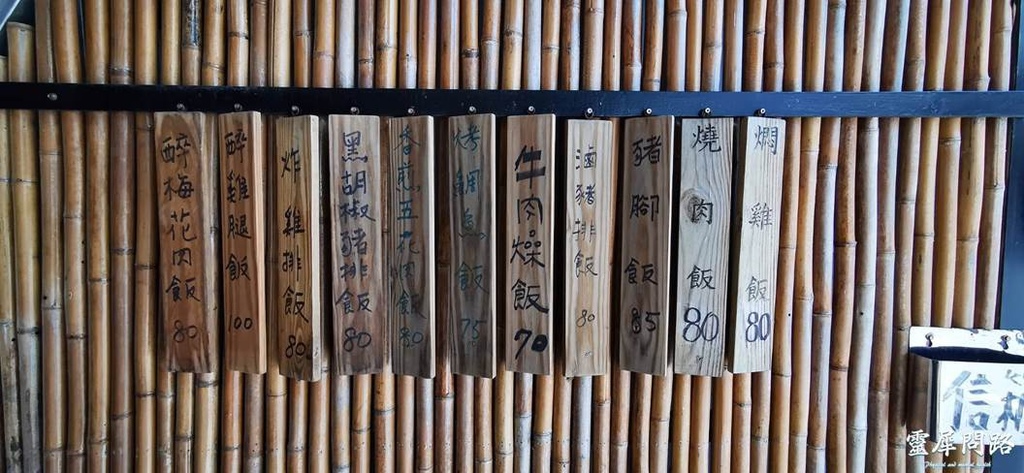 醉梅花肉飯 80
醉雞腿飯 100
炸雞排飯 80
黑胡椒豬排飯 80
香煎五花肉飯 80
烤鯛魚飯 75
牛肉燥飯 70
滷豬排飯 80
豬腳飯 85
燒肉飯 80
燜雞飯 80
信箱
靈犀問路